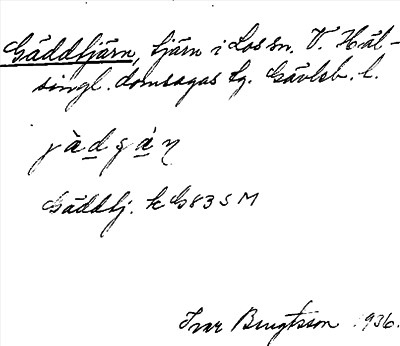 Gäddtjärn, tjärn i Los sn. V. Häl-
singl. domsagas tg. Gävleb. l.
jàdʂáɳ
Gäddtj. k G83SM
Ivar Bengtsson 1936.